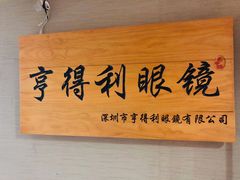 亨得利眼镜
深圳市亨得利眼鏡有限公司